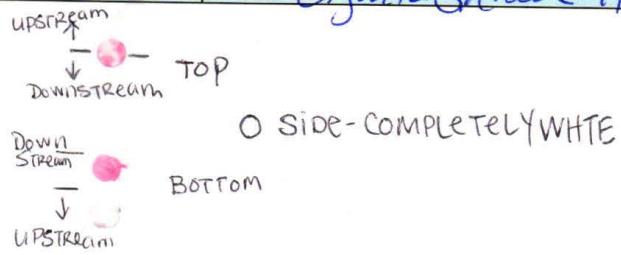 UPSTREAM
TOP
DOWNSTREAM
O SIDE-COMPLETELY WHTE
DOWN
STREAM
BOTTOM
UPSTREAM